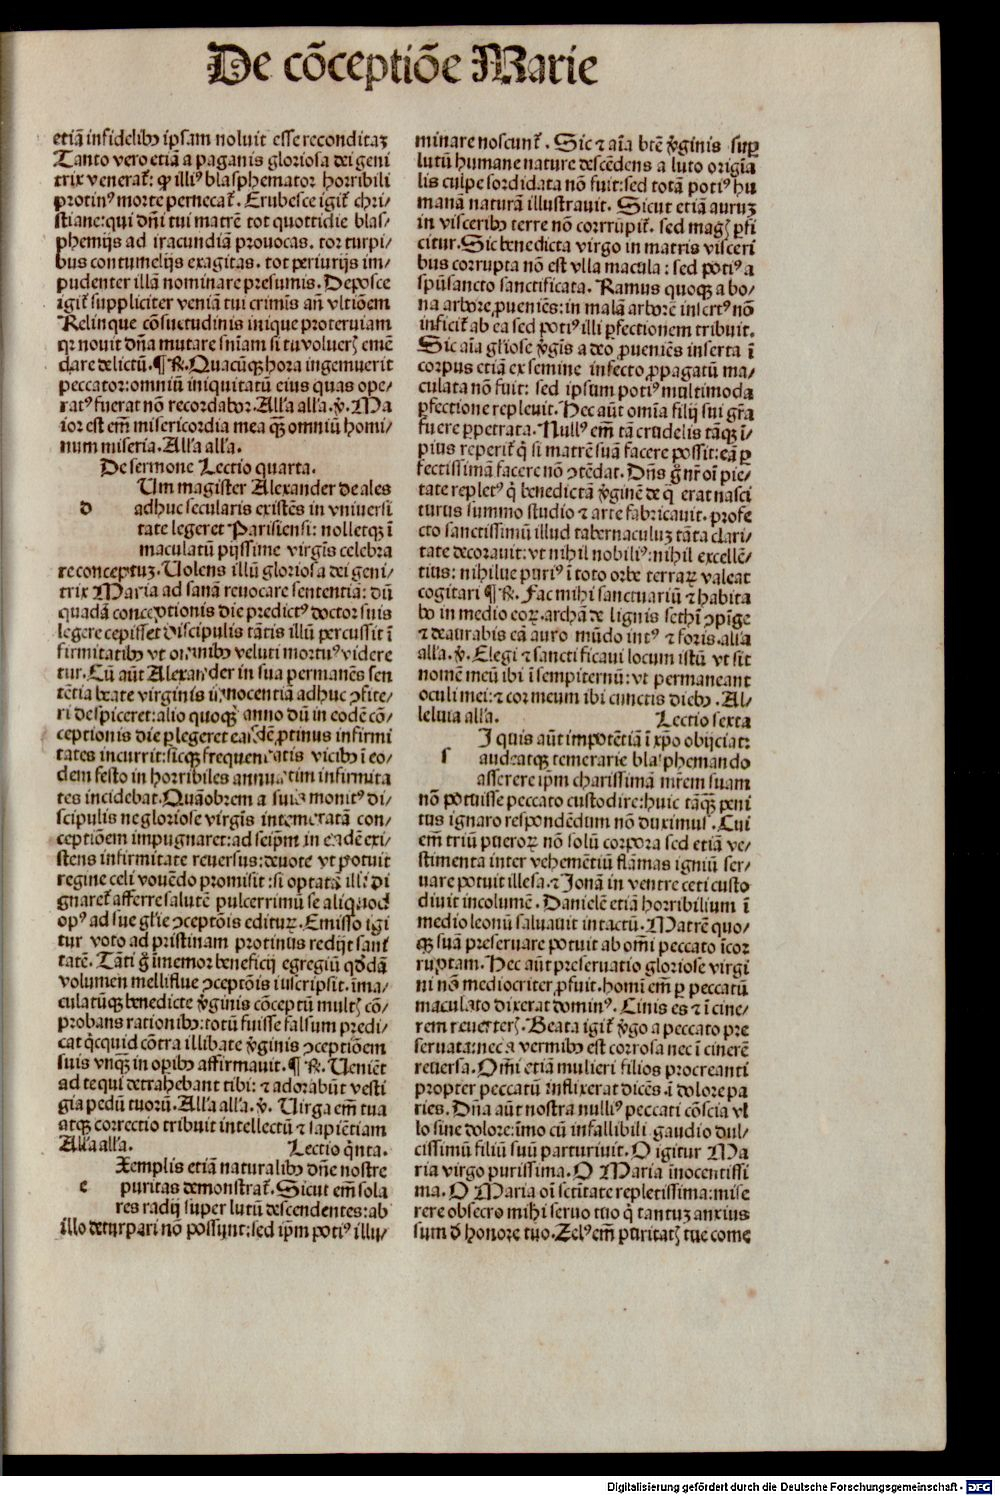 De cōceptiōe Marie
etiā infidelibꝫ ipsam noluit esse reconditaʒ
Tanto vero etiā a paganis gloriosa dei geni
trix venerat᷑: ꝙ illiꝰ blasphemator horribili
ꝓtinꝰ morte pernecat᷑. Erubesce igit᷑ chri⸗
stiane: qui dn̄i tui matrē tot quottidie blas⸗
phemijs ad iracundiā prouocas. tot turpi⸗
bus contumelijs exagitas. tot periurijs im⸗
pudenter illā nominare presumis. Deposce
igit᷑ suppliciter veniā tui criminis an̄ vltiōem
Relinque cōsuetudinis inique proteruiam
qꝛ nouit dn̄a mutare sn̄iam si tu volueris emē
dare delictū. ¶ ℟. Quacūqꝫ hora ingemuerit
peccator: omniū iniquitatū eius quas ope⸗
ratꝰ fuerat nō recordabor. All'a all'a. ꝟ. Ma
ior est em̄ misericordia mea qꝫ omniū homi⸗
num miseria. All'a all'a.
De sermone Lectio quarta.
Um magister Alexander de ales
d adhuc secularis existēs in vniuersi
tate legeret Parisiensi: nolletqꝫ ī
maculatū pijssime virgīs celebra
re conceptuʒ. Uolens illū gloriosa dei geni⸗
trix Maria ad sanā reuocare sententiā: dū
quadā conceptionis die predictꝰ doctor suis
legere cepisset discipulis tātis illū percussit ī
firmitatibꝫ vt omnibꝫ veluti mortuꝰ videre
tur. Cū aūt Alexander in sua permanēs sen
tētia beate virginis innocentiā adhuc ꝯfite⸗
ri despiceret: alio quoqꝫ anno dū in eodē cō⸗
ceptionis die ꝑlegeret eādē ꝓtinus infirmi
tates incurrit: sicqꝫ frequentatis vicibꝫ ī eo⸗
dem festo in horribiles annuatim infirmita
tes incidebat. Quāobrem a suis monitꝰ di⸗
scipulis ne gloriose virgīs intemeratā con⸗
ceptiōem impugnaret: ad seip̄m in eadē exi⸗
stens infirmitate reuersus: deuote vt potuit
regine celi vouēdo promisit: si optatā illi di
gnaret᷑ afferre salutē pulcerrimū se aliquod
opꝰ ad sue gl'ie ꝯceptōis editurꝝ. Emisso igi
tur voto ad pristinam protinus redijt sani
tatē. Tāti g̊ īmemor beneficij egregiū qd̓dā
volumen melliflue ꝯceptōis inscripsit. īma⸗
culatūqꝫ benedicte v̓ginis cōceptū multis cō⸗
probans rationibꝫ: totū fuisse falsum predi⸗
cat qͥcquid cōtra illibate v̓ginis ꝯceptiōem
suis vnqꝫ in oꝑibꝫ affirmauit. ¶ ℟. Ueniēt
ad te qui detrahebant tibi: ⁊ adorabūt vesti
gia pedū tuorū. All'a all'a. ꝟ. Uirga em̄ tua
atqꝫ correctio tribuit intellectū ⁊ sapiētiam
All'a all'a. Lectio qͥnta.
Xemplis etiā naturalibꝫ dn̄e nostre
e puritas demonstrat᷑. Sicut em̄ sola
res radij super lutū descendentes: ab
illo deturpari nō possunt: sed ip̄m potiꝰ illu⸗
minare noscunt᷑. Sic ⁊ aīa btē v̓ginis suꝑ
lutū humane nature descēdens a luto origīa
lis culpe sordidata nō fuit: sed totā potiꝰ hu
manā naturā illustrauit. Sicut etiā auruʒ
in visceribꝫ terre nō corrrūpit᷑. sed magis ꝑfi
citur. Sic benedicta virgo in matris visceri
bus corrupta nō est vlla macula: sed potiꝰ a
spūsancto sanctificata. Ramus quoqꝫ a bo⸗
na arbore ꝓueniēs: in malā arborē insertꝰ nō
inficit᷑ ab ea sed potiꝰ illi ꝑfectionem tribuit.
Sic aīa gl'iose v̓gīs a deo ꝓueniēs inserta ī
corpus etiā ex semine infecto ꝓpagatū ma⸗
culata nō fuit: sed ipsum potiꝰ multimoda
ꝑfectione repleuit. Hec aūt omīa filij sui gr̄a
fuere ꝑpetrata. Nullꝰ em̄ tā crudelis tāqꝫ ī⸗
pius reperit᷑ qͥ si matrē suā facere possit: eā ꝑ
fectissimā facere nō ꝯtēdat. Dn̄s g̊ nr̄ oī pie⸗
tate repletꝰ qͥ benedictā v̓ginē de q̄ erat nasci
turus summo studio ⁊ arte fabricauit. profe
cto sanctissimū illud tabernaculuʒ tāta clari⸗
tate decorauit: vt nihil nobiliꝰ: nihil excellē⸗
tius: nihilue puriꝰ ī toto orbe terrarꝝ valeat
cogitari ¶ ℟. Fac mihi sanctuariū ⁊ habita
bo in medio eorꝝ. archā de lignis sethī ꝯpīge
⁊ deaurabis eā auro mūdo intꝰ ⁊ foris. all'a
all'a. ꝟ. Elegi ⁊ sanctificaui locum istū vt sit
nomē meū ibi ī sempiternū: vt permaneant
oculi mei: ⁊ cor meum ibi cunctis diebꝫ. Al⸗
leluia all'a. Lectio sexta
I quis aūt impotētiā ī xp̄o obijciat:
s audeatqꝫ temerarie blasphemando
asserere ip̄m charissimā mr̄em suam
nō potuisse peccato custodire: huic tāqꝫ peni
tus ignaro respondēdum nō duximus. Cui
em̄ triū puerorꝝ nō solū corpora sed etiā ve⸗
stimenta inter vehemētiū flāmas igniū ser⸗
uare potuit illesa. ⁊ Jonā in ventre ceti custo
diuit incolumē. Danielē etiā horribilium ī
medio leonū saluauit intactū. Matrē quo⸗
qꝫ suā preseruare potuit ab om̄i peccato īcor
ruptam. Hec aūt preseruatio gloriose virgi
ni nō mediocriter ꝓfuit. homī em̄ ꝑ peccatū
maculato dixerat dominꝰ. Cinis es ⁊ ī cine⸗
rem reuerteris. Beata igit᷑ v̓go a peccato pre
seruata: nec a vermibꝫ est corrosa nec ī cinerē
reuersa. Om̄i etiā mulieri filios procreanti
propter peccatū inflixerat dicēs. ī dolore pa
ries. Dn̄a aūt nostra nulliꝰ peccati cōscia vl
lo sine dolore: īmo cū infallibili gaudio dul⸗
cissimū filiū suū parturiuit. O igitur Ma
ria virgo purissima. O Maria īnocentissi
ma. O Maria oī sctītate repletissima: mise
rere obsecro mihi seruo tuo qͥ tantuʒ anxius
sum d̓ honore tuo. Zelꝰ em̄ puritatis tue come
Digitalisierung gefördert durch die Deutsche Forschungsgemeinschaft - DFG